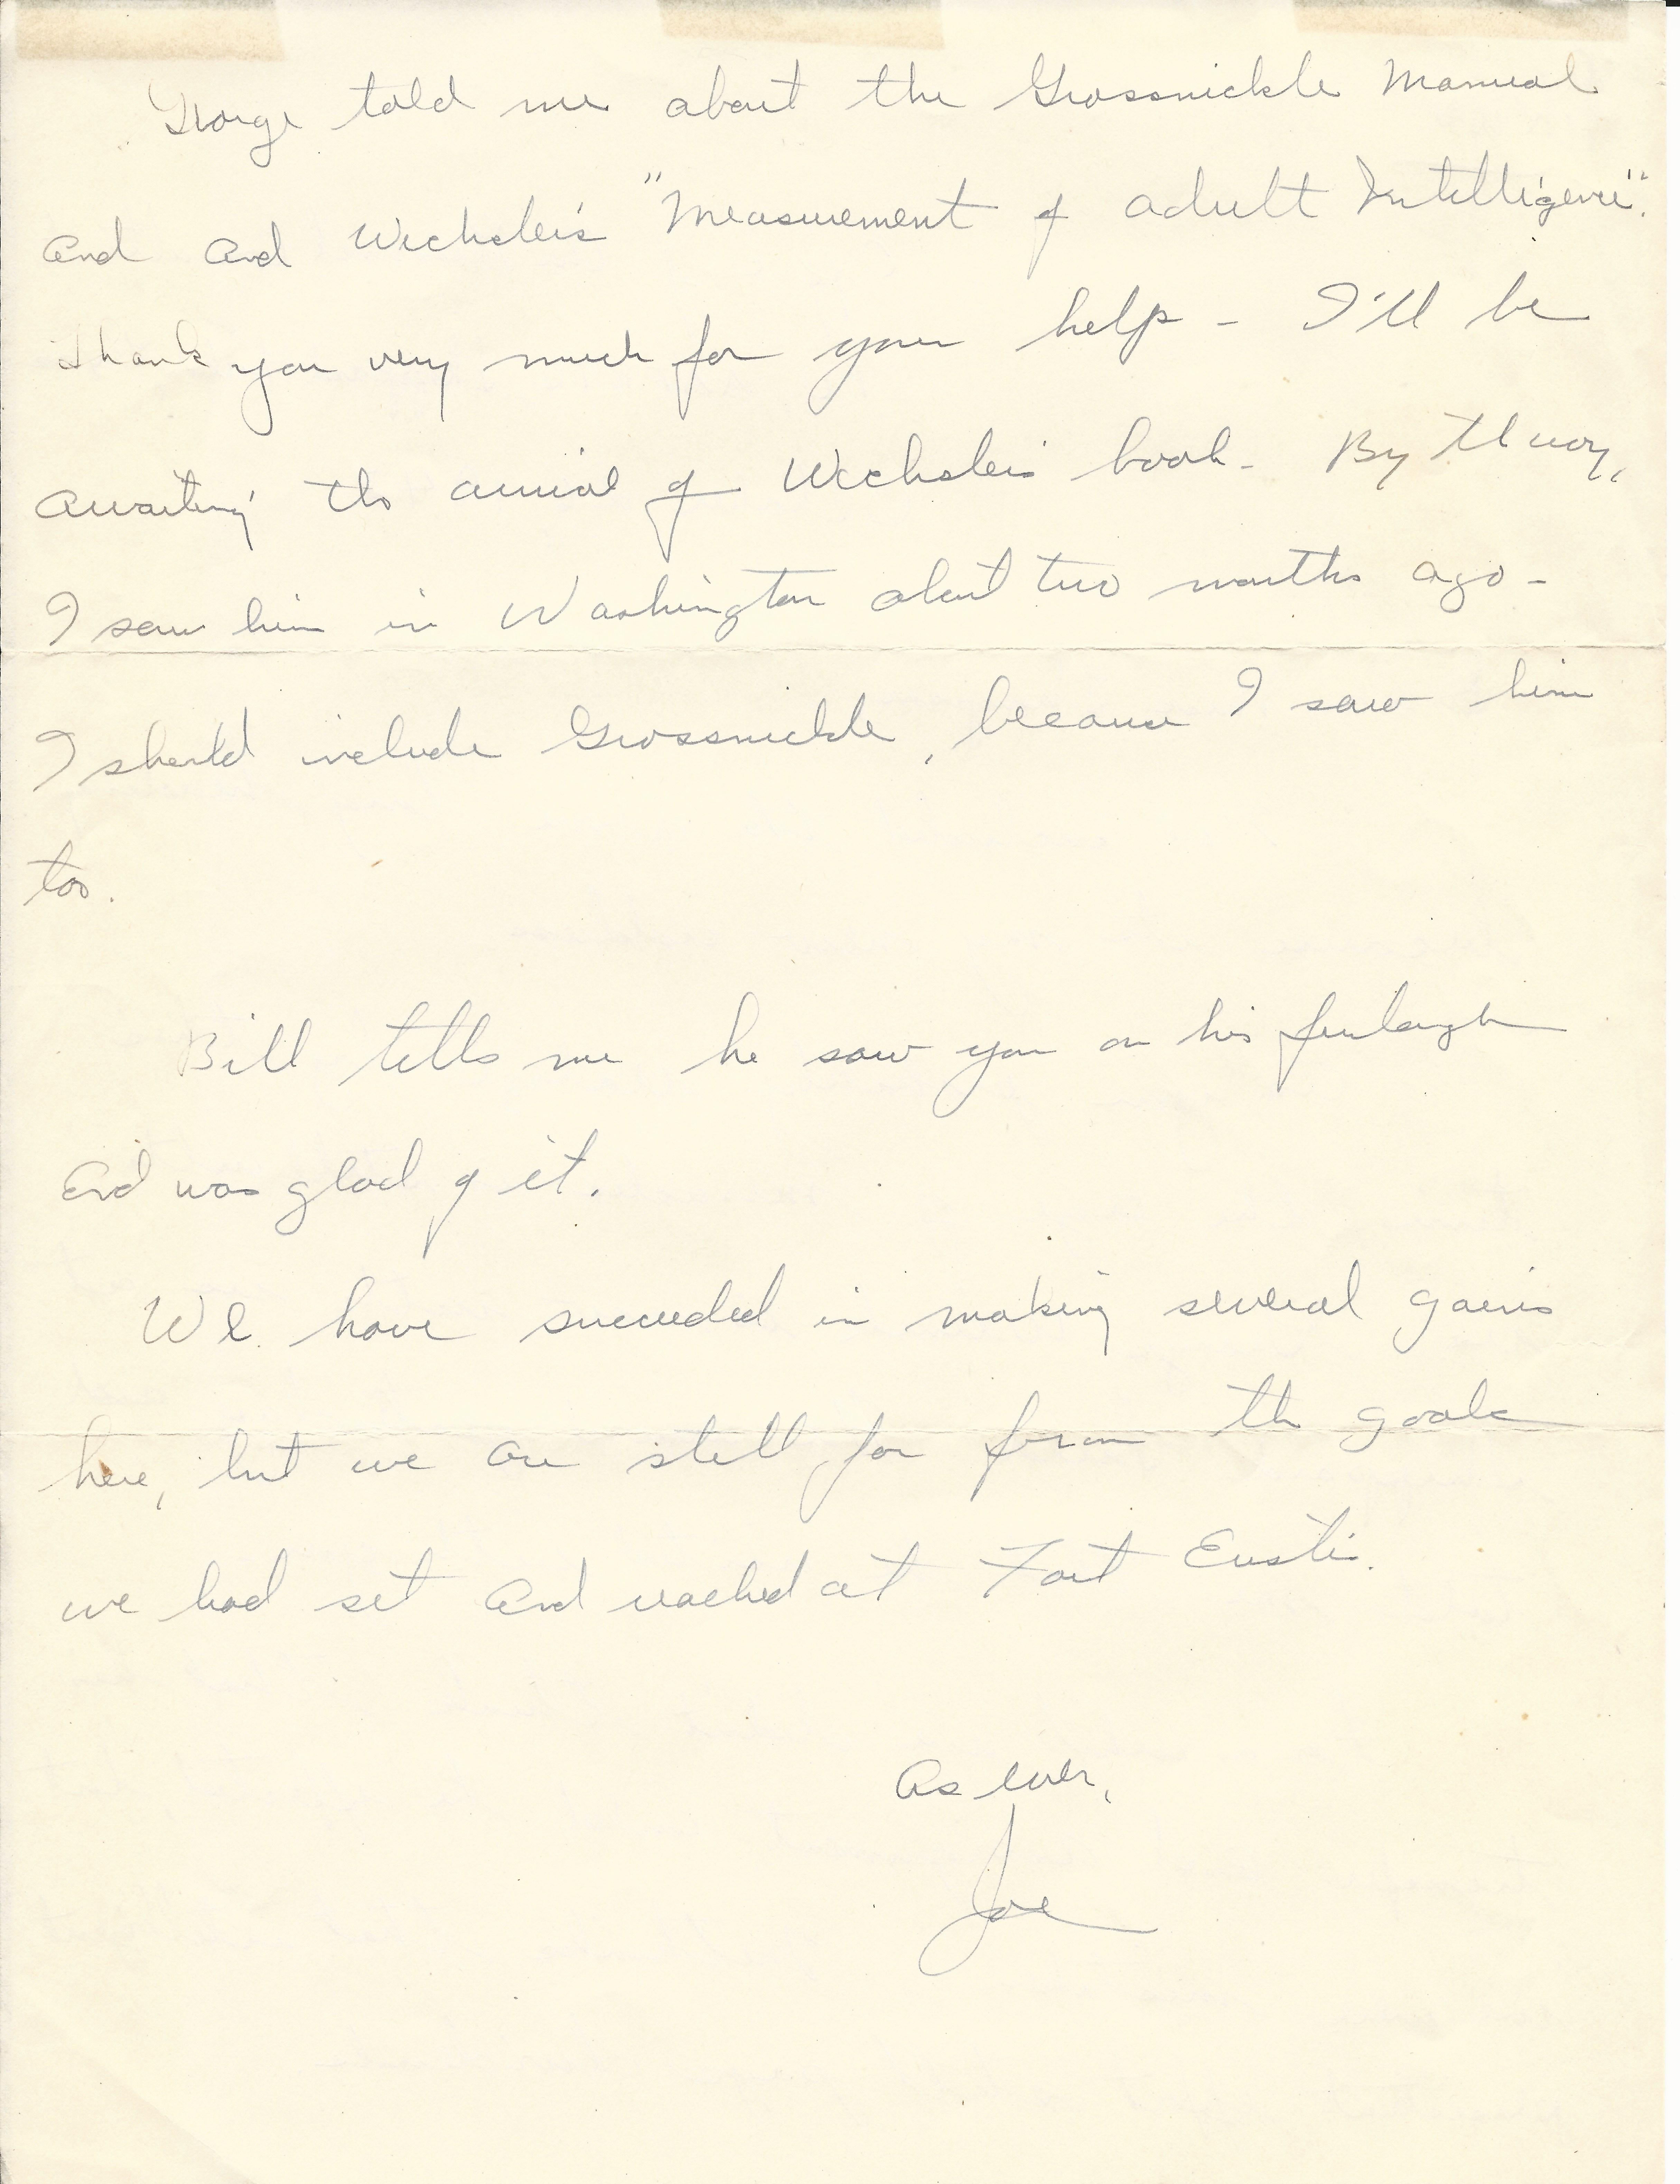 George told me about the Grossnickle Manual
and and Wechsler's "Measurement of adult Intelligence".
Thank you very much for your help - I'll be
awaiting the arrival of Wechsler's book - By the way,
I saw him in Washington about two months ago -
I should include Grossnickle, because I saw him
too.
Bill tells me he saw you on his furlough
and was glad of it.
We have succeeded in making several gains
here, but we are still far from the goals
we had set and reached at Fort Eustis.
As ever,
Joe